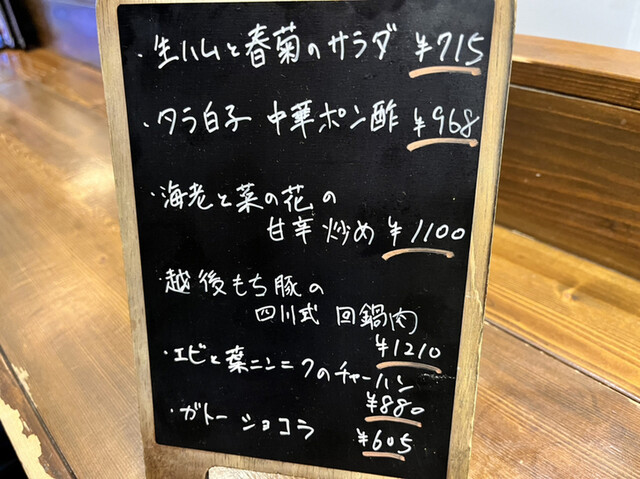 ・生ハムと春菊のサラダ ¥715
・タラ白子 中華ポン酢 ¥968
・海老と菜の花の
甘辛炒め ¥1100
越後もち豚の
四川式 回鍋肉
¥1210
・エビと葉ニンニクのチャーハン
¥880
・ガトーショコラ ¥605